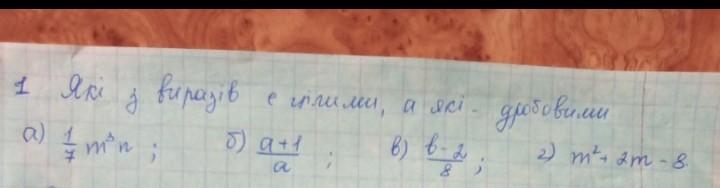 1 Які з виразів є цілими, а які - дробовими
а) 1/7 m³n ; б) (a+1)/a ; в) (b-2)/8 ; г) m²+2m-8.